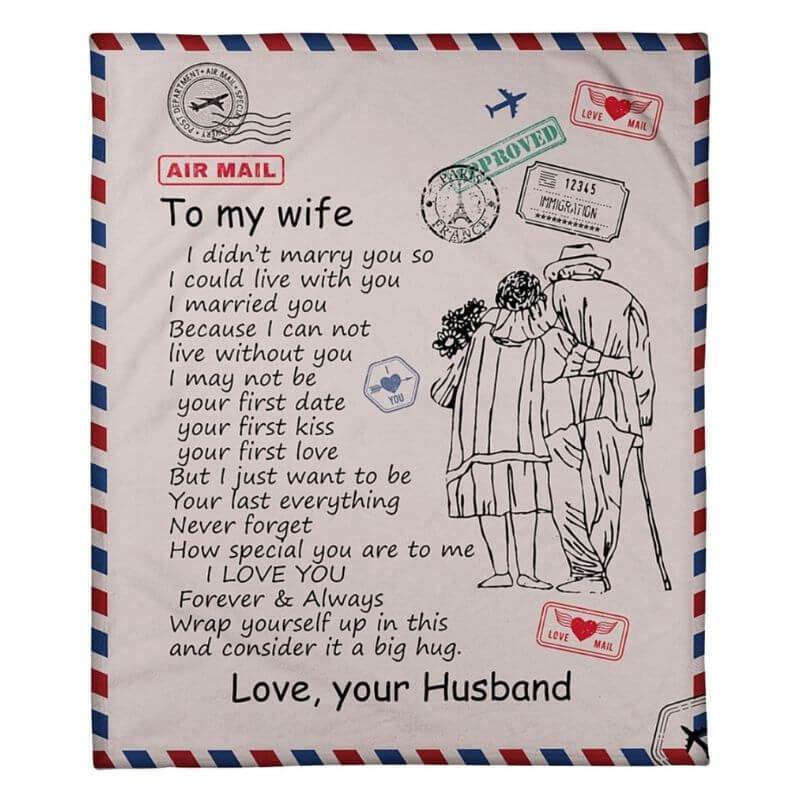 POST DEPARTMENT • AIR MAIL • SPECIAL DELIVERY •
LOVE MAIL
APPROVED
AIR MAIL
PARIS
FRANCE
12345
IMMIGRATION
**********
To my wife
I didn't marry you so
I could live with you
I married you
Because I can not
live without you
I may not be
your first date
your first kiss
your first love
But I just want to be
Your last everything
Never forget
How special you are to me
I LOVE YOU
Forever & Always
Wrap yourself up in this
and consider it a big hug.
Love, your Husband
I
YOU
LOVE MAIL